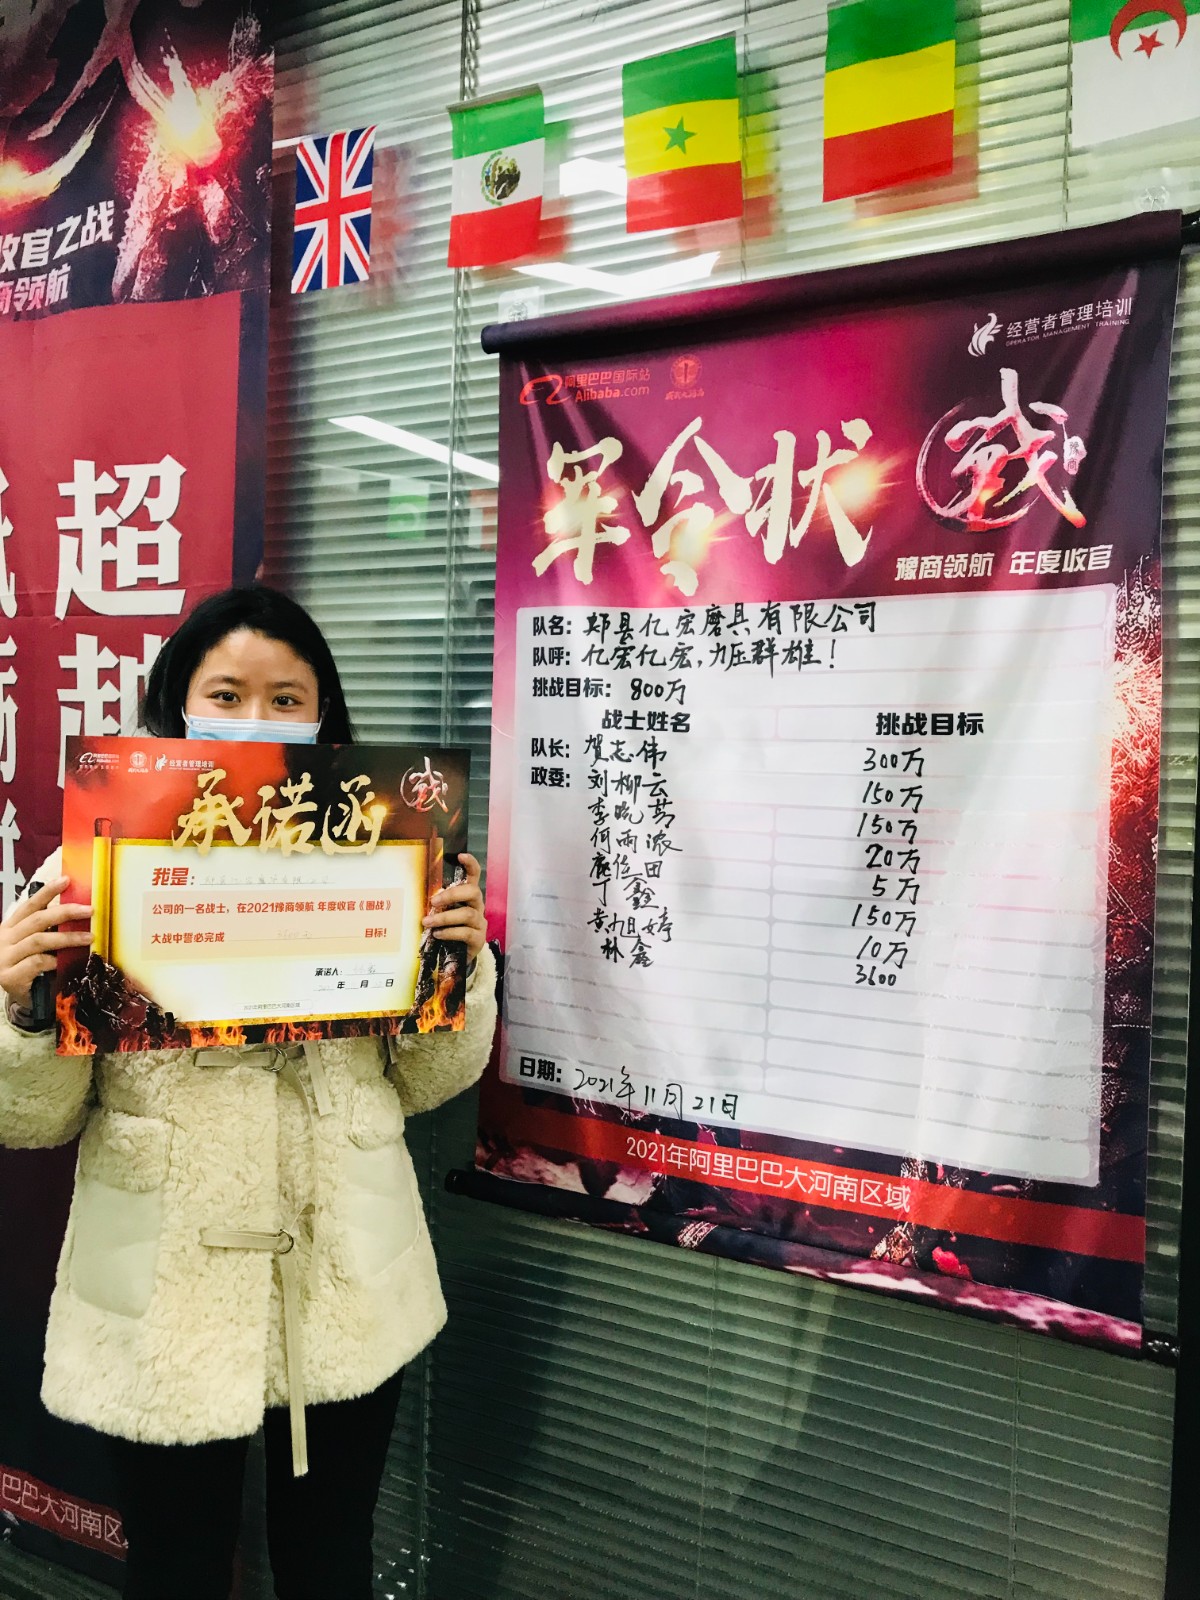 收官之战
商领航
超
越
经营者管理培训
OPERATOR MANAGEMENT TRAINING
阿里巴巴国际站
Alibaba.com
军令状
战
豫商
豫商领航 年度收官
队名: 郏县亿宏磨具有限公司
队呼: 亿宏亿宏,力压群雄!
挑战目标: 800万
战士姓名 挑战目标
队长: 贺志伟 300万
政委: 刘柳云 150万
李晓 150万
何雨浓 20万
庞佐田 5万
丁鑫 150万
黄旭婷 10万
林鑫 3600
日期: 2021年11月21日
2021年阿里巴巴大河南区域
阿里巴巴国际站
Alibaba.com
经营者管理培训
战
承诺函
我是:
公司的一名战士,在2021豫商领航 年度收官《圈战》
大战中誓必完成 目标!
承诺人:
年 月 日
2021年阿里巴巴大河南区域
巴巴大河南区